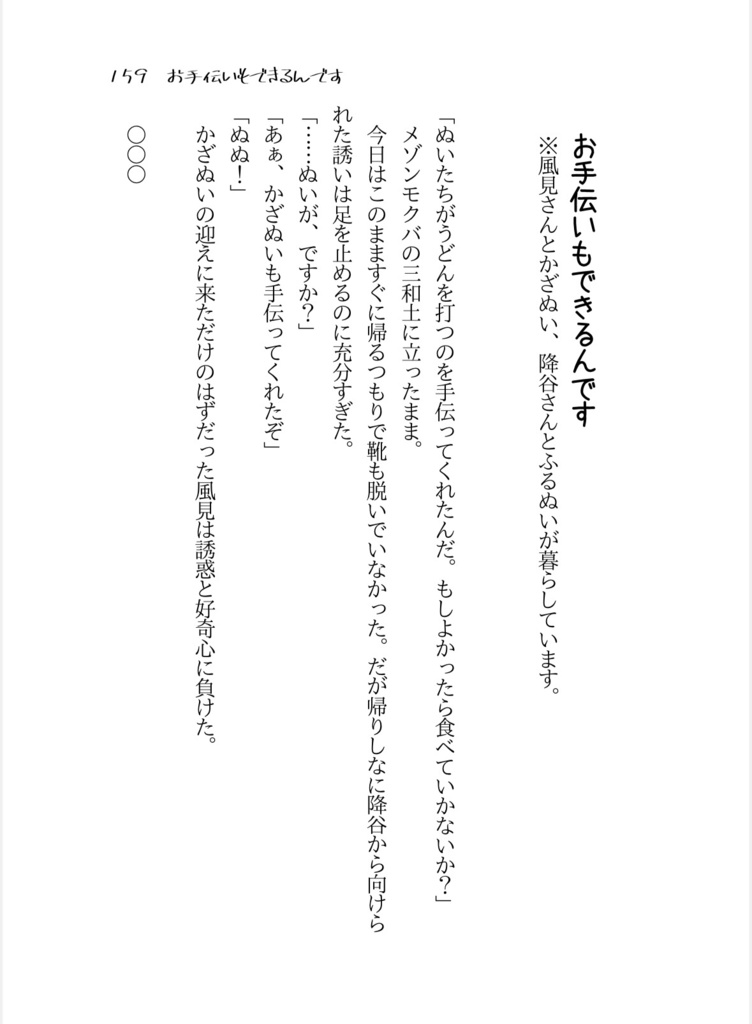 159 お手伝いもできるんです
お手伝いもできるんです
※風見さんとかざぬい、降谷さんとふるぬいが暮らしています。
「ぬいたちがうどんを打つのを手伝ってくれたんだ。もしよかったら食べていかないか？」
メゾンモクバの三和土に立ったまま。
今日はこのまますぐに帰るつもりで靴も脱いでいなかった。だが帰りしなに降谷から向けら
れた誘いは足を止めるのに充分すぎた。
「……ぬいが、ですか？」
「あぁ、かざぬいも手伝ってくれたぞ」
「ぬぬ！」
かざぬいの迎えに来ただけのはずだった風見は誘惑と好奇心に負けた。
○○○